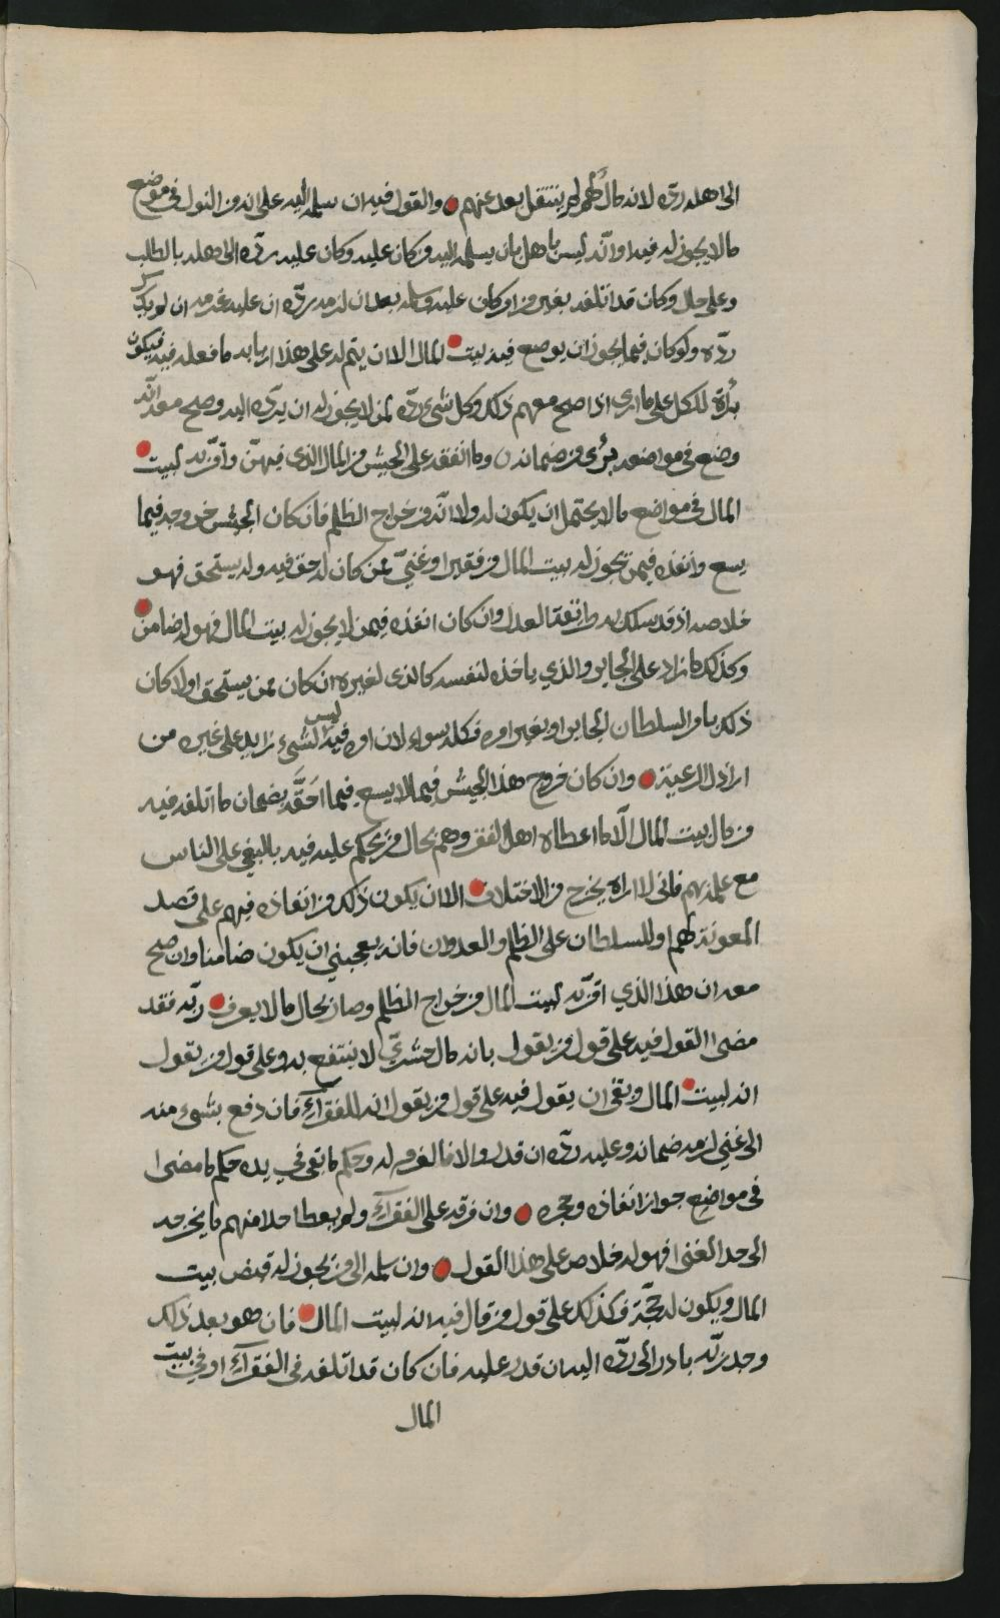 الى اهله ردّه لانه مال لهم لم ينتقل بعد عنهم والقول فيه ان سلمه اليه على انه من النول في موضع
مالا يجوز له فيه او انّه ليس باهل بان يسلمه اليه وكان عليه وكان عليه ردّه الى اهله بالطلب
وعلى حال وكان قد اتلفه بغير من اوكان عليه وسلمه بعد ان لزمه ردّه ان عليه غرمه ان لم يمكن
ردّه ولو كان فيما يجوز ان يوضع فيه بيت المال الا ان يتم له على هذا اربابه ما فعله فيه فيكون
برأة للكل على ما ارى اذا صح معهم ذلك وكل شيء ردّه لمن لا يجوز له ان يردّه اليه وصح معه انّه
وضع في مواضعه برئ من ضمانه وما انفقه على الجيش من المال الذي فيهنّ واقرّ به لبيت
المال في مواضع مالا يحتمل ان يكون له ولا انّه من خراج الظلم فان كان الجيش خروجه فيما
يسع وانفذه فيمن يجوز له بيت المال من فقير او غنيّ ممن كان له حق فيه وله يستحق فهو
خلاصه اذ قد سلك به طريقة العدل وان كان انفذه فيمن لا يجوز له بيت المال فهو له ضامن
وكذلك ما زاد على الجابر والذي ياخذه لنفسه كالذي لغيره ان كان ممن يستحق اولا كان
ذلك بامر السلطان الجابر او بغير امره فكله سواء لان امره فيه ليس لشيء زايد على غيره من
اراذل الرعية وان كان خروج هذا الجيش فيما لا يسع فيما احقّه بضمان ما اتلفه فيه
من مال بيت المال الّا ما اعطاه اهل الفقر وهم بحال من يحكم عليه فيه بالبغي على الناس
مع علمه بهم فاني لا اراه يخرج من الاختلاف الا ان يكون ذلك من انفاذه فيهم على قصد
المعونة لهم او للسلطان على الظلم والعدوان فانه يعجبني ان يكون ضامنا وان صح
معه ان هذا الذي اقرّ به لبيت المال من خراج المظلم وصار بحال مالا يعرف ربّه فقد
مضى القول فيه على قول من يقول بانه مال حشريّ لا ينتفع به وعلى قول من يقول
انه لبيت المال وبقي ان يقول فيه على قول من يقول انه للفقرآء فان دفع بشيء منه
الى غني لزمه ضمانه وعليه ردّه ان قدر والا فالغرم له وحكم ما بقي في يده حكم ما مضى
في مواضع جواز انفاذه وحجره وان فرقه على الفقرآء ولم يعط احدا منهم ما يخرجه
الى حد الغنى فهو له خلاص على هذا القول وان سلمه الى من يجوز له قبض بيت
المال ويكون له حجّة فكذلك على قول من قال فيه انه لبيت المال فان هو بعد ذلك
وجد ربّه بادر الى ردّه اليه ان قدر عليه فان كان قد اتلفه في الفقرآء او في بيت
المال